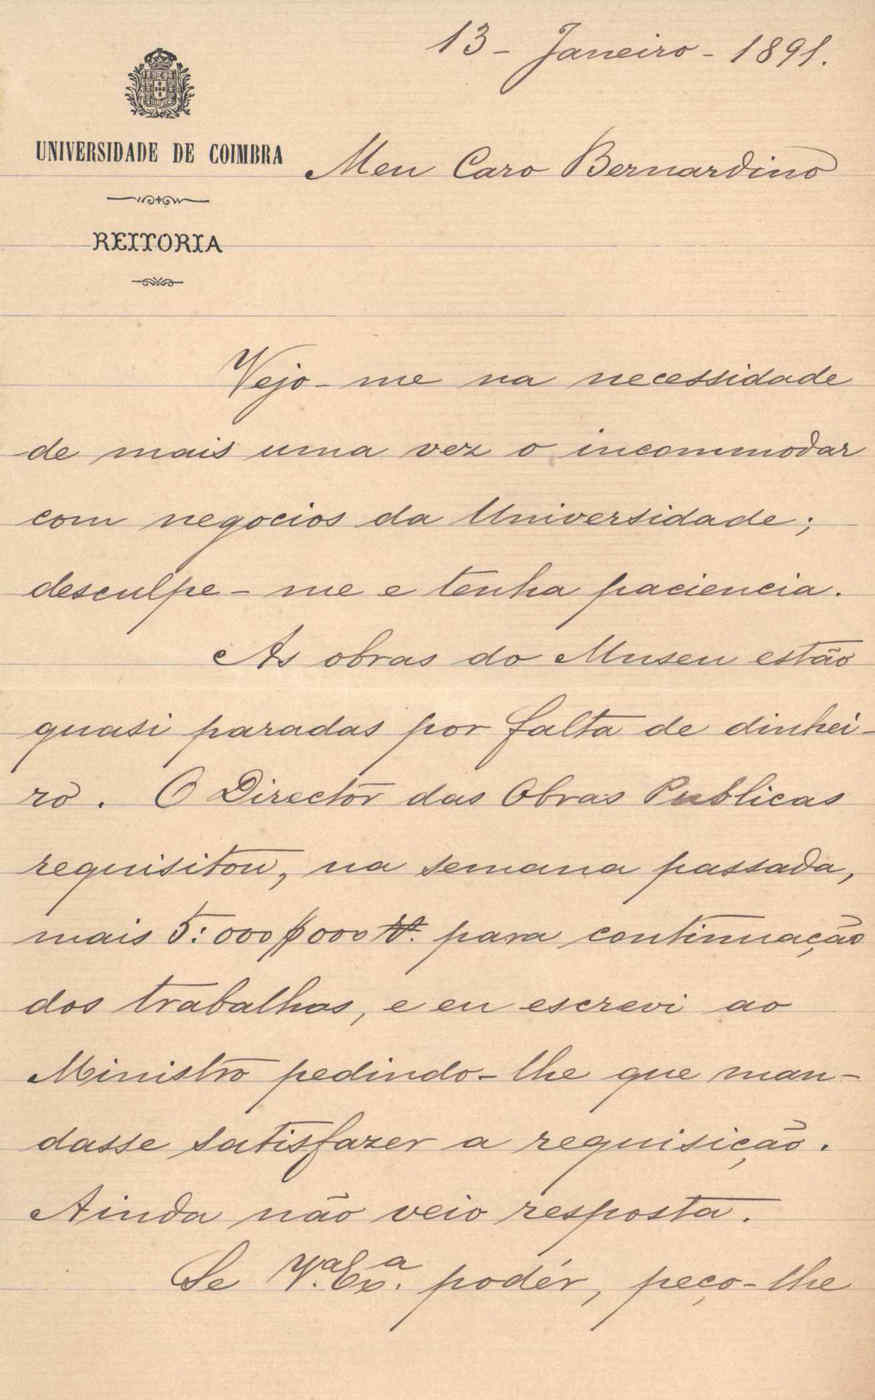 13 - Janeiro - 1891.
UNIVERSIDADE DE COIMBRA
REITORIA
Meu Caro Bernardino
Vejo-me na necessidade
de mais uma vez o incommodar
com negocios da Universidade;
desculpe-me e tenha paciencia.
As obras do Museu estão
quasi paradas por falta de dinhei-
ro. O Director das Obras Publicas
requisitou, na semana passada,
mais 5:000$000 rs. para continuação
dos trabalhos, e eu escrevi ao
Ministro pedindo-lhe que man-
dasse satisfazer a requisição.
Ainda não veio resposta.
Se V.ª Ex.ª podér, peço-lhe